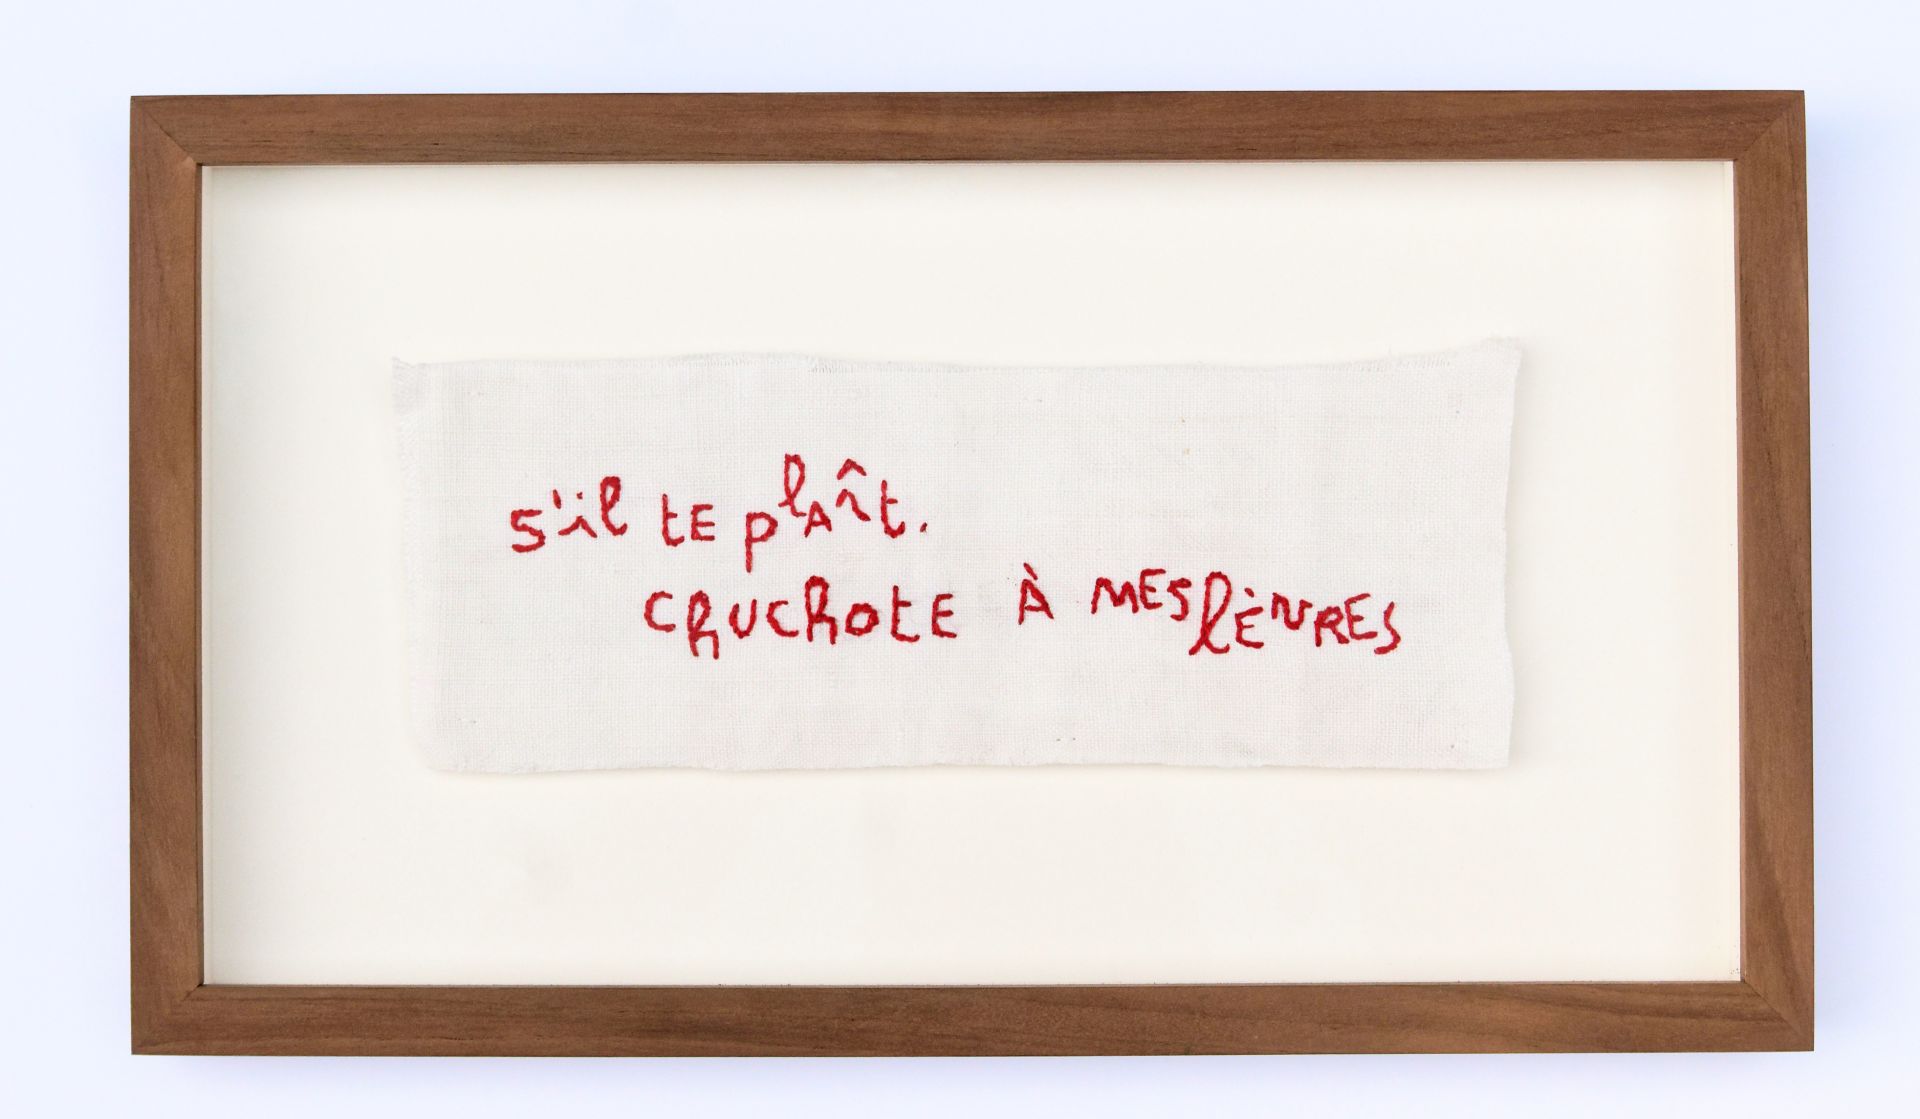 s'il tE plAît.
ChUChOtE À MES lÈVRES